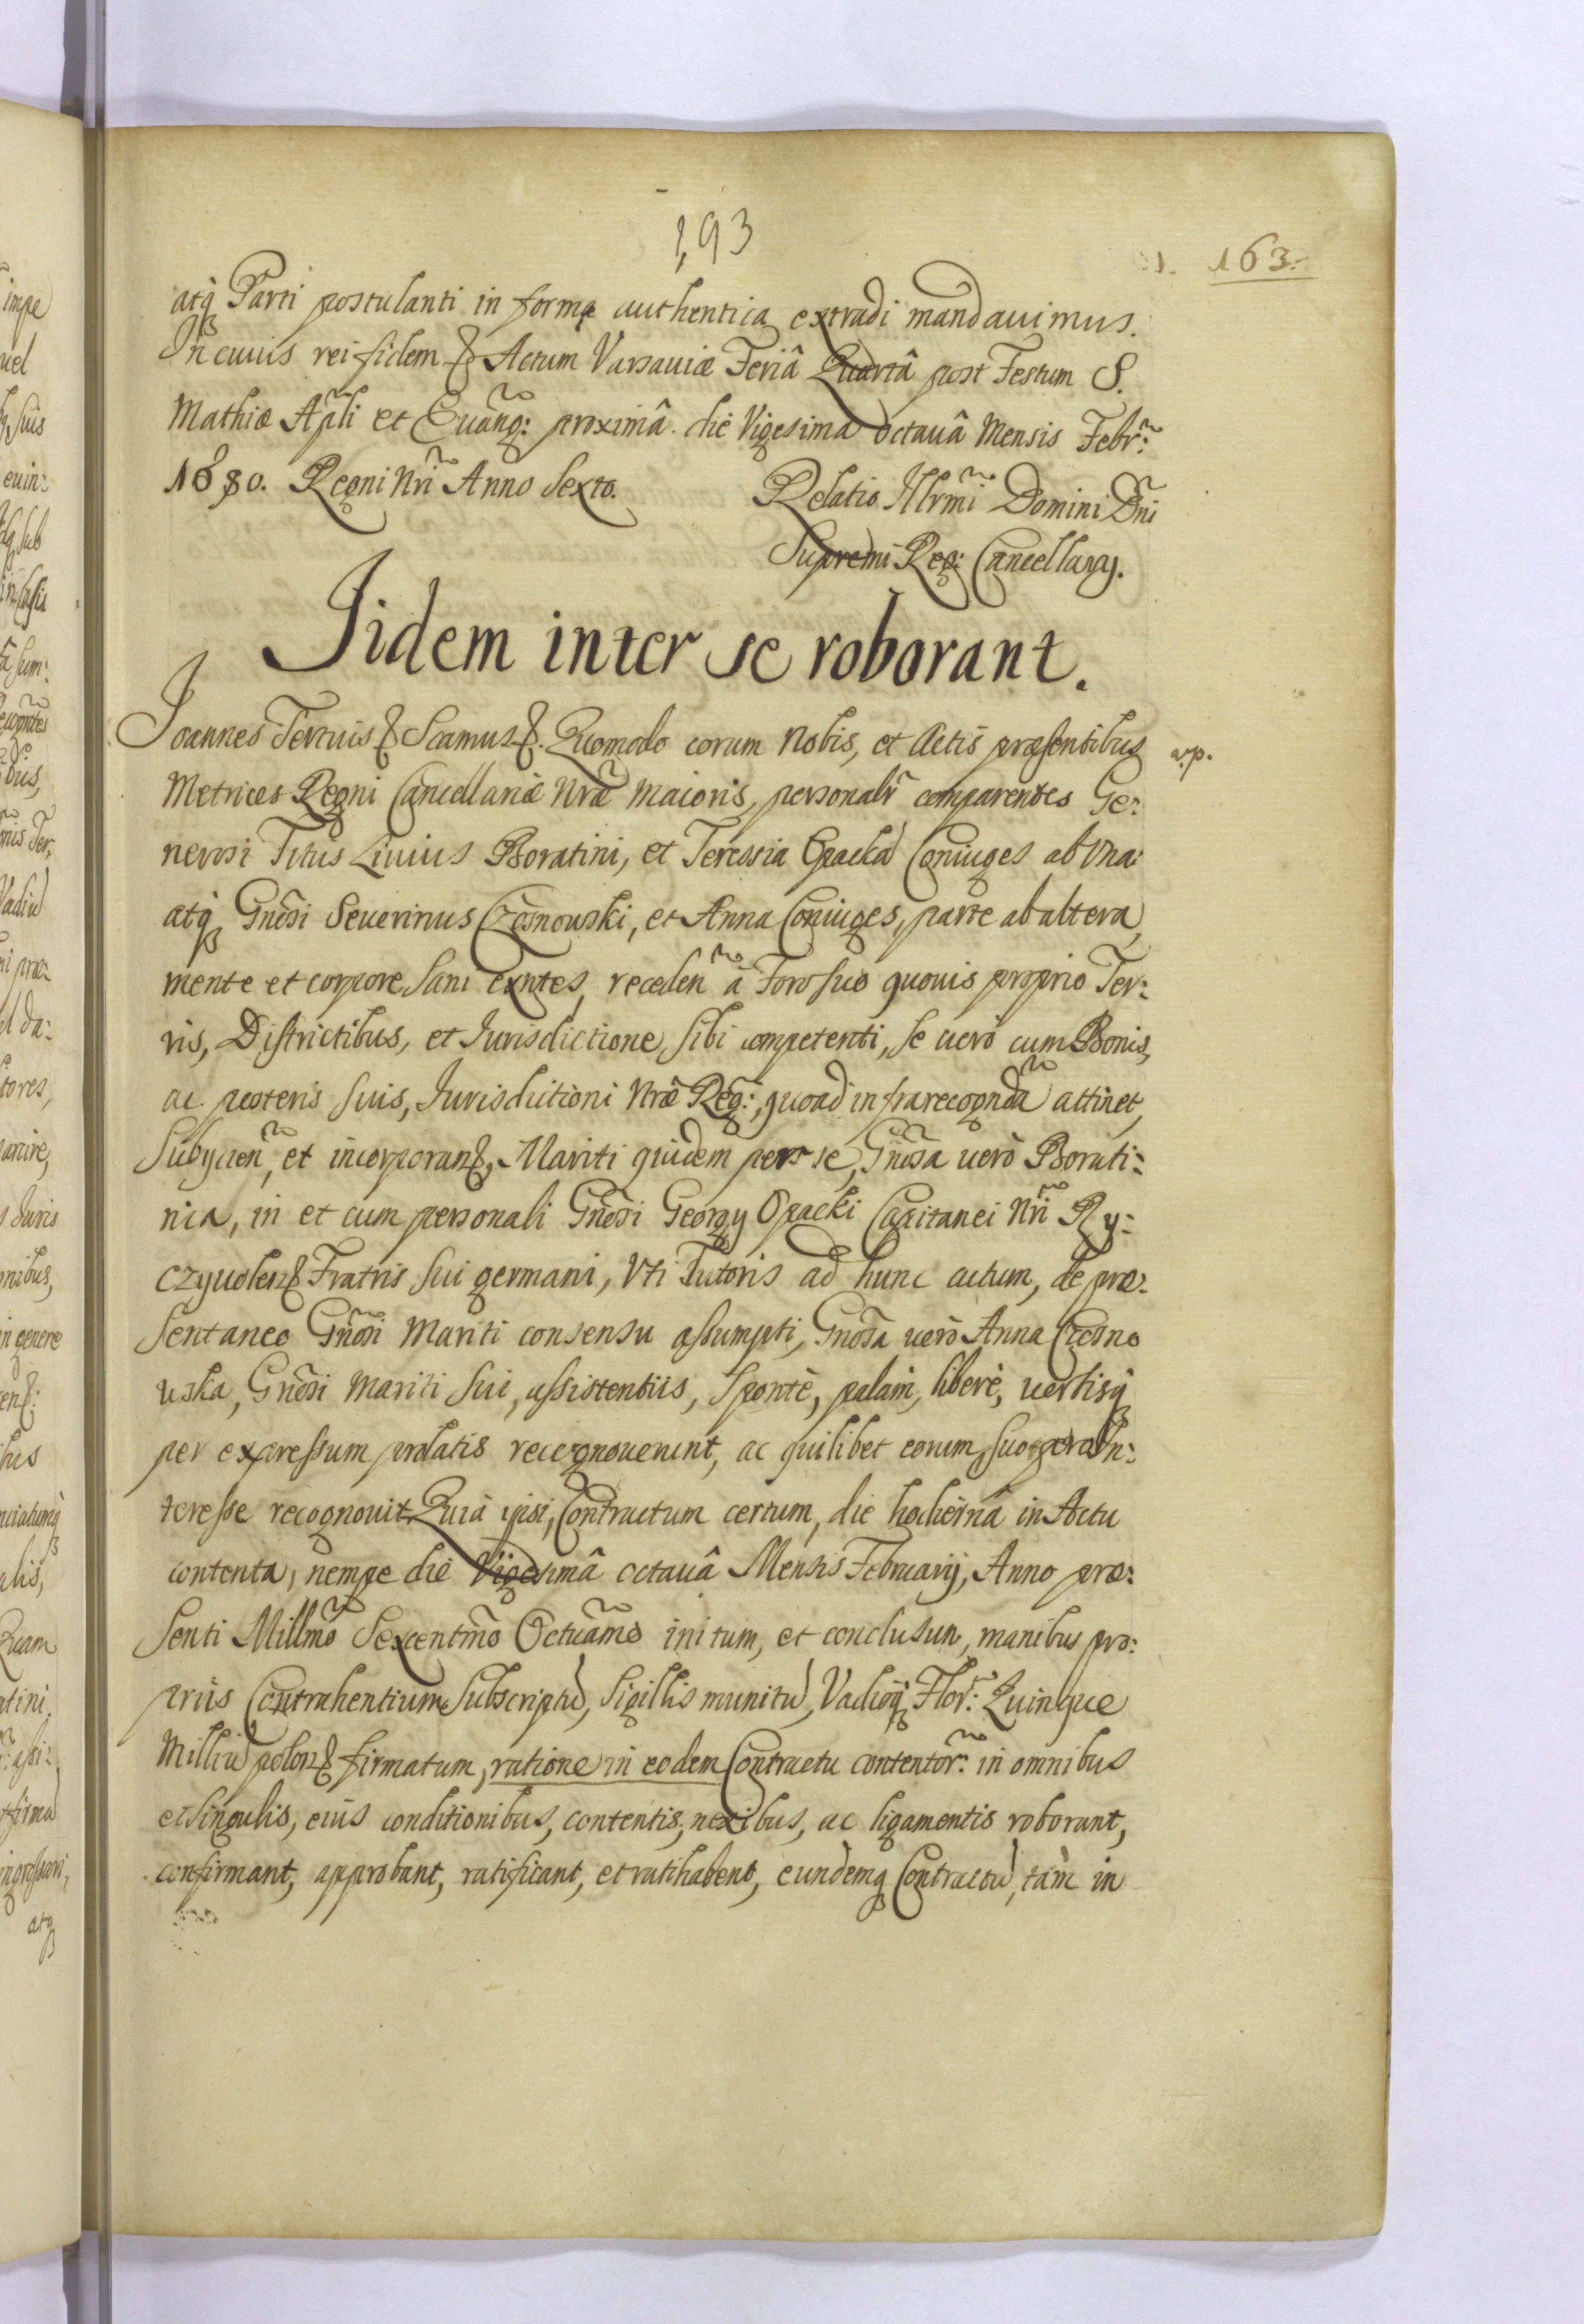 193
163.
atq Parti postulanti in forma authentica extradi mandauimus.
In cuius rei fidem & Actum Varsauiæ Feriâ Quartâ post Festum S.
Mathiæ Apli et Euang: proximâ die Vigesima Octauâ Mensis Febr:
1680. Regni Nri Anno Sexto.
Relatio Illrmi Domini Dni
Supremi Reg: Cancellarij.
Iidem inter se roborant.
Joannes Tertius & Scamus &. Quomodo corum Nobis, et Actis præsentibus
Metrices Regni Cancellariæ Nræ Maioris, personalr comparentes Ge:
nerosi Titus Liuius Boratini, et Teressia Opacka Coniuges ab Vna:
atq Gnosi Seuerinus Czosnowski, et Anna Coniuges, parte ab altera,
mente et corpore sani exntes, receden à Foro suo quouis proprio Ter:
ris, Districtibus, et Iurisdictione sibi competenti, se uero cum Bonis,
ac posteris suis, Iurisdictioni Nræ Reg:, quoad infrarecognda attinet,
Subijcien, et incorporan&, Mariti quidem per se, Gnosa uerò Borati:
nia, in et cum personali Gnosi Georgy Opacki Capitanei Nri Ry:
czyuolen& Fratris sui germani, Vti Tutoris ad hunc actum, de præ:
sentaneo Gnosi Mariti consensu assumpti, Gnosa uerò Anna Czosno
uska, Gnosi Mariti sui, assistentiis, Spontè, palàm, liberè, uerbisq
per expressum prolatis recognouerunt, ac quilibet eorum, suo pro In:
teresse recognouit, Quià ipsi, Contractum certum, die hodierna in Actu
contenta, nempe die Vigesimâ octauâ Mensis Februarij, Anno præ:
senti Millmo Sexcentmo Octuamo initum, et conclusun, manibus pro:
priis Contrahentium Subscriptu, Sigillis munitu, Vadioq Flor: Quinque
Milliu polon& firmatum, ratione in eodem Contractu contentor: in omnibus
et singulis, eius conditionibus, contentis, nexibus, ac ligamentis roborant,
confirmant, approbant, ratificant, et ratihabent, eundemq Contractu, tàm in